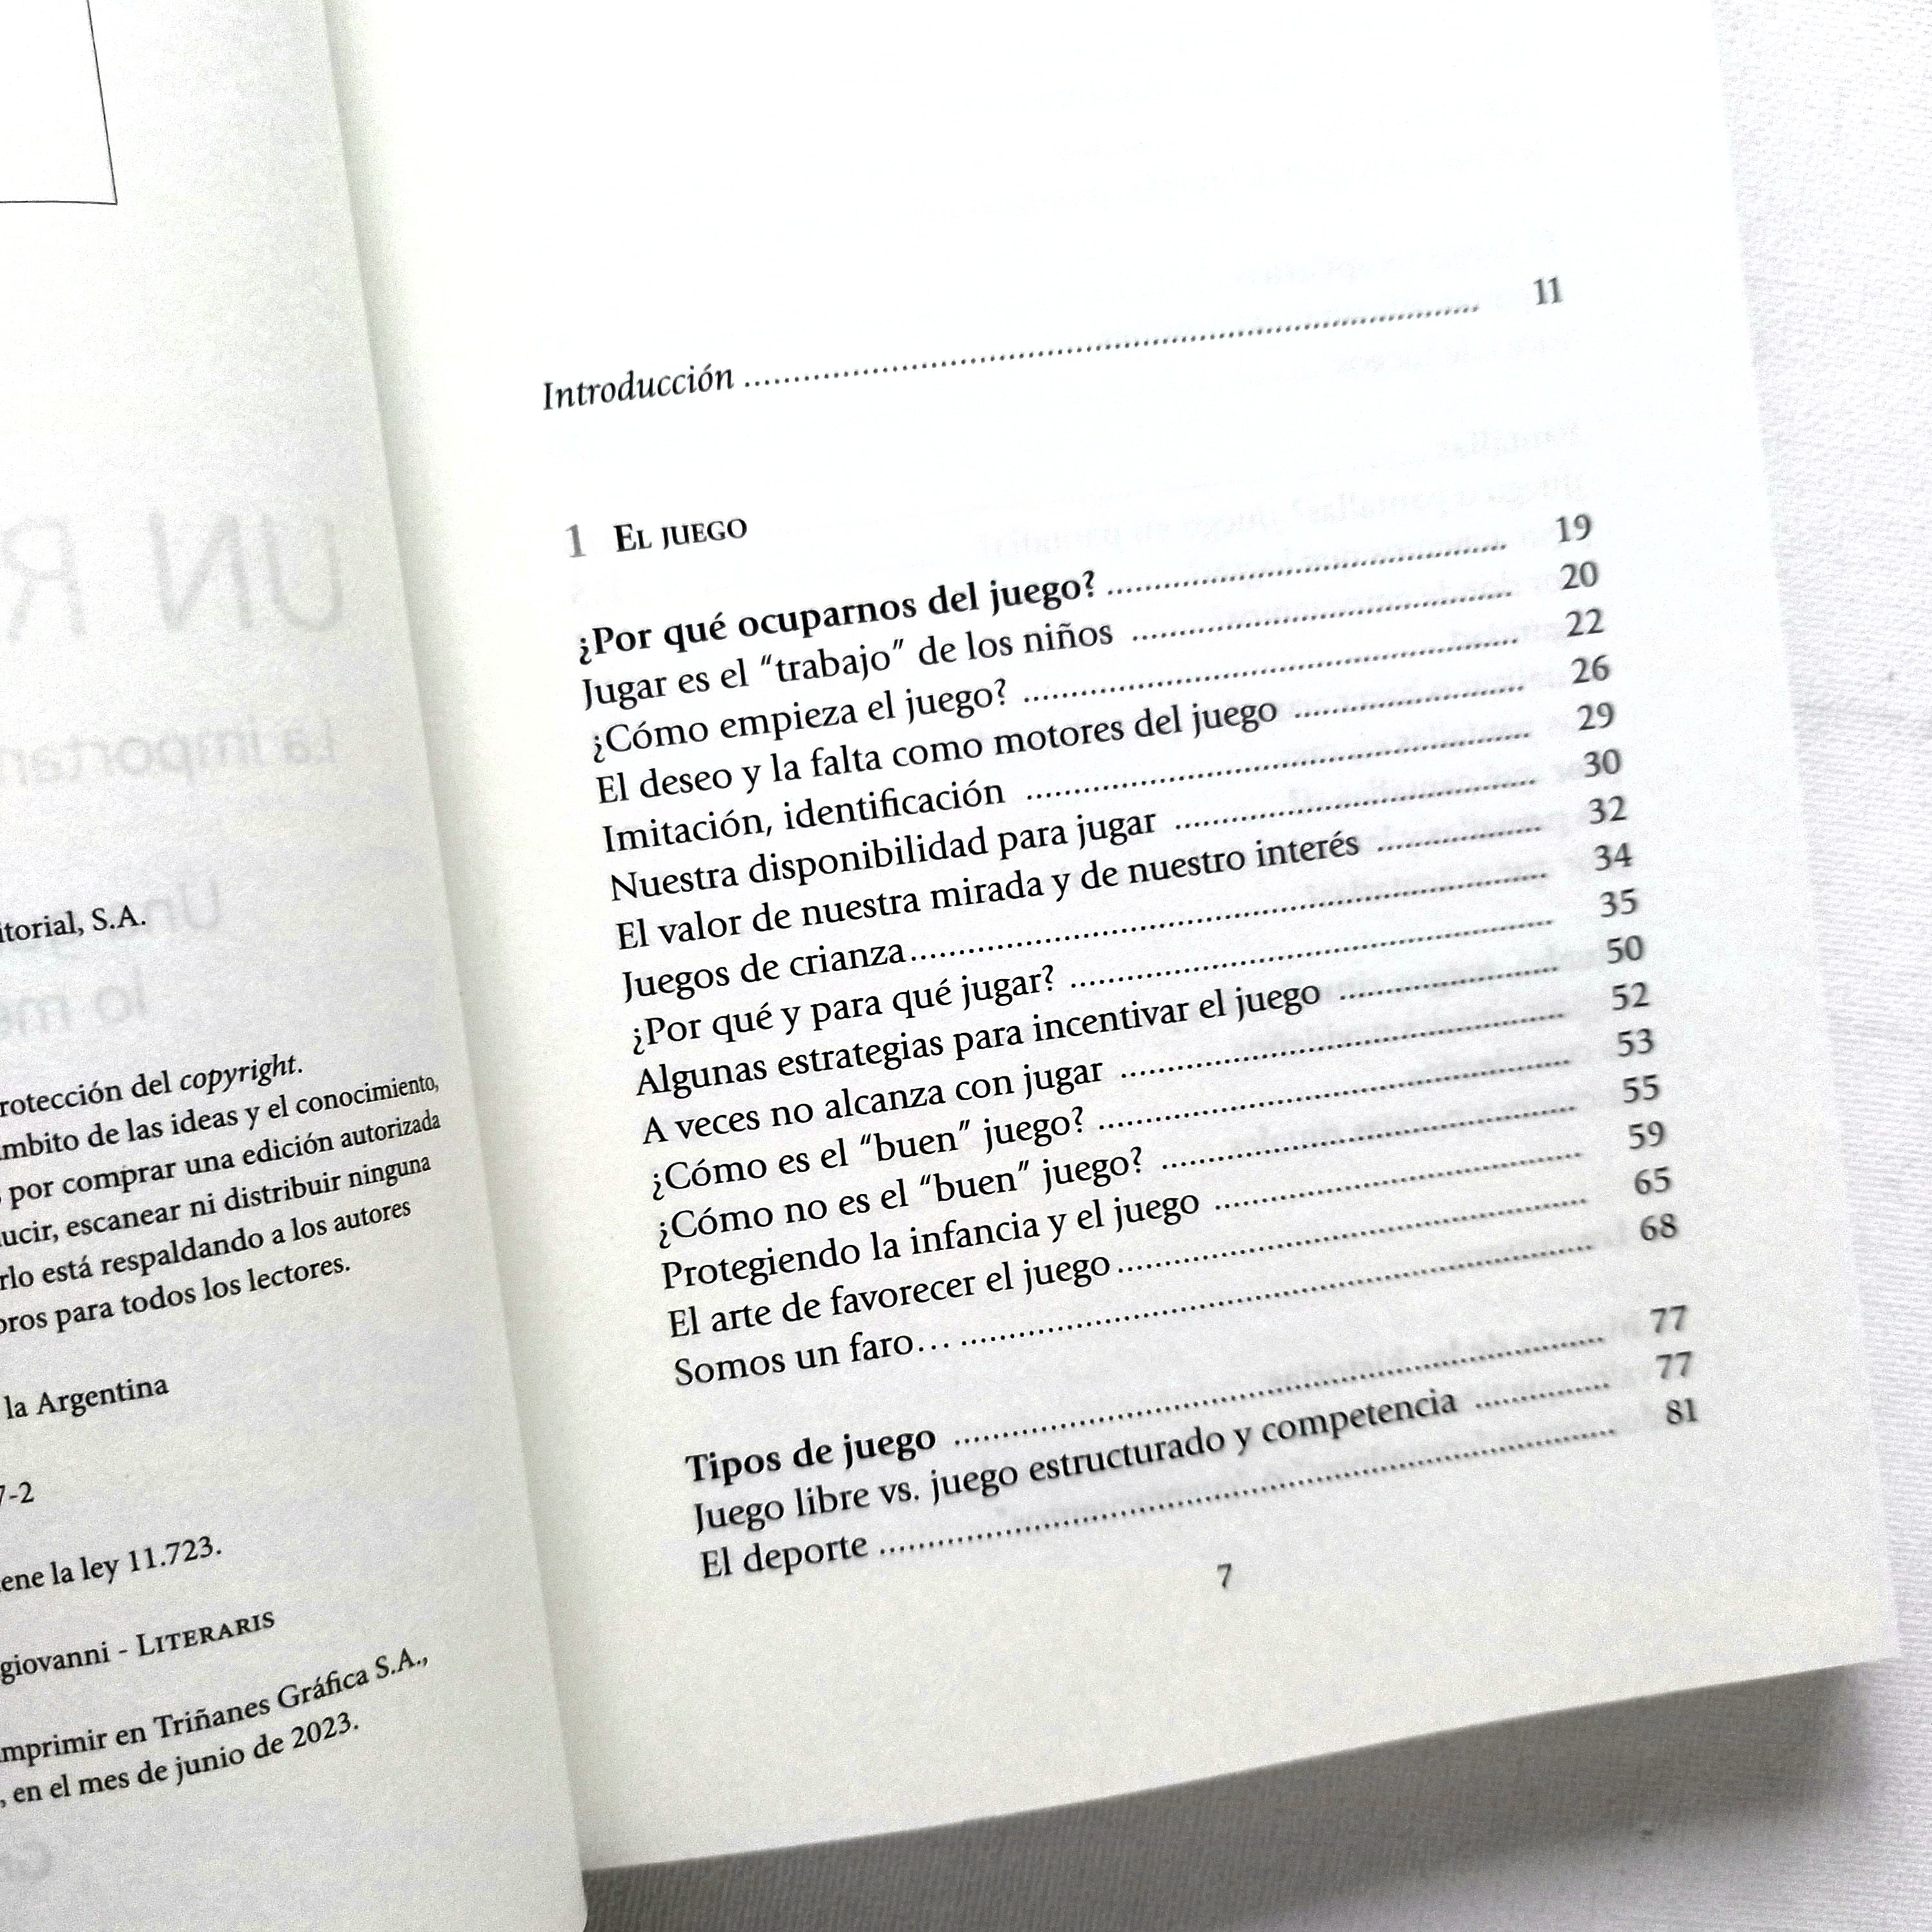 itorial, S.A.
rotección del copyright.
mbito de las ideas y el conocimiento,
por comprar una edición autorizada
ucir, escanear ni distribuir ninguna
rlo está respaldando a los autores
bros para todos los lectores.
la Argentina
7-2
ene la ley 11.723.
giovanni - LITERARIS
mprimir en Triñanes Gráfica S.A.,
, en el mes de junio de 2023.
Introducción 11
1 EL JUEGO
¿Por qué ocuparnos del juego? 19
Jugar es el “trabajo” de los niños 20
¿Cómo empieza el juego? 22
El deseo y la falta como motores del juego 26
Imitación, identificación 29
Nuestra disponibilidad para jugar 30
El valor de nuestra mirada y de nuestro interés 32
Juegos de crianza 34
¿Por qué y para qué jugar? 35
Algunas estrategias para incentivar el juego 50
A veces no alcanza con jugar 52
¿Cómo es el “buen” juego? 53
¿Cómo no es el “buen” juego? 55
Protegiendo la infancia y el juego 59
El arte de favorecer el juego 65
Somos un faro… 68
Tipos de juego 77
Juego libre vs. juego estructurado y competencia 77
El deporte 81
7